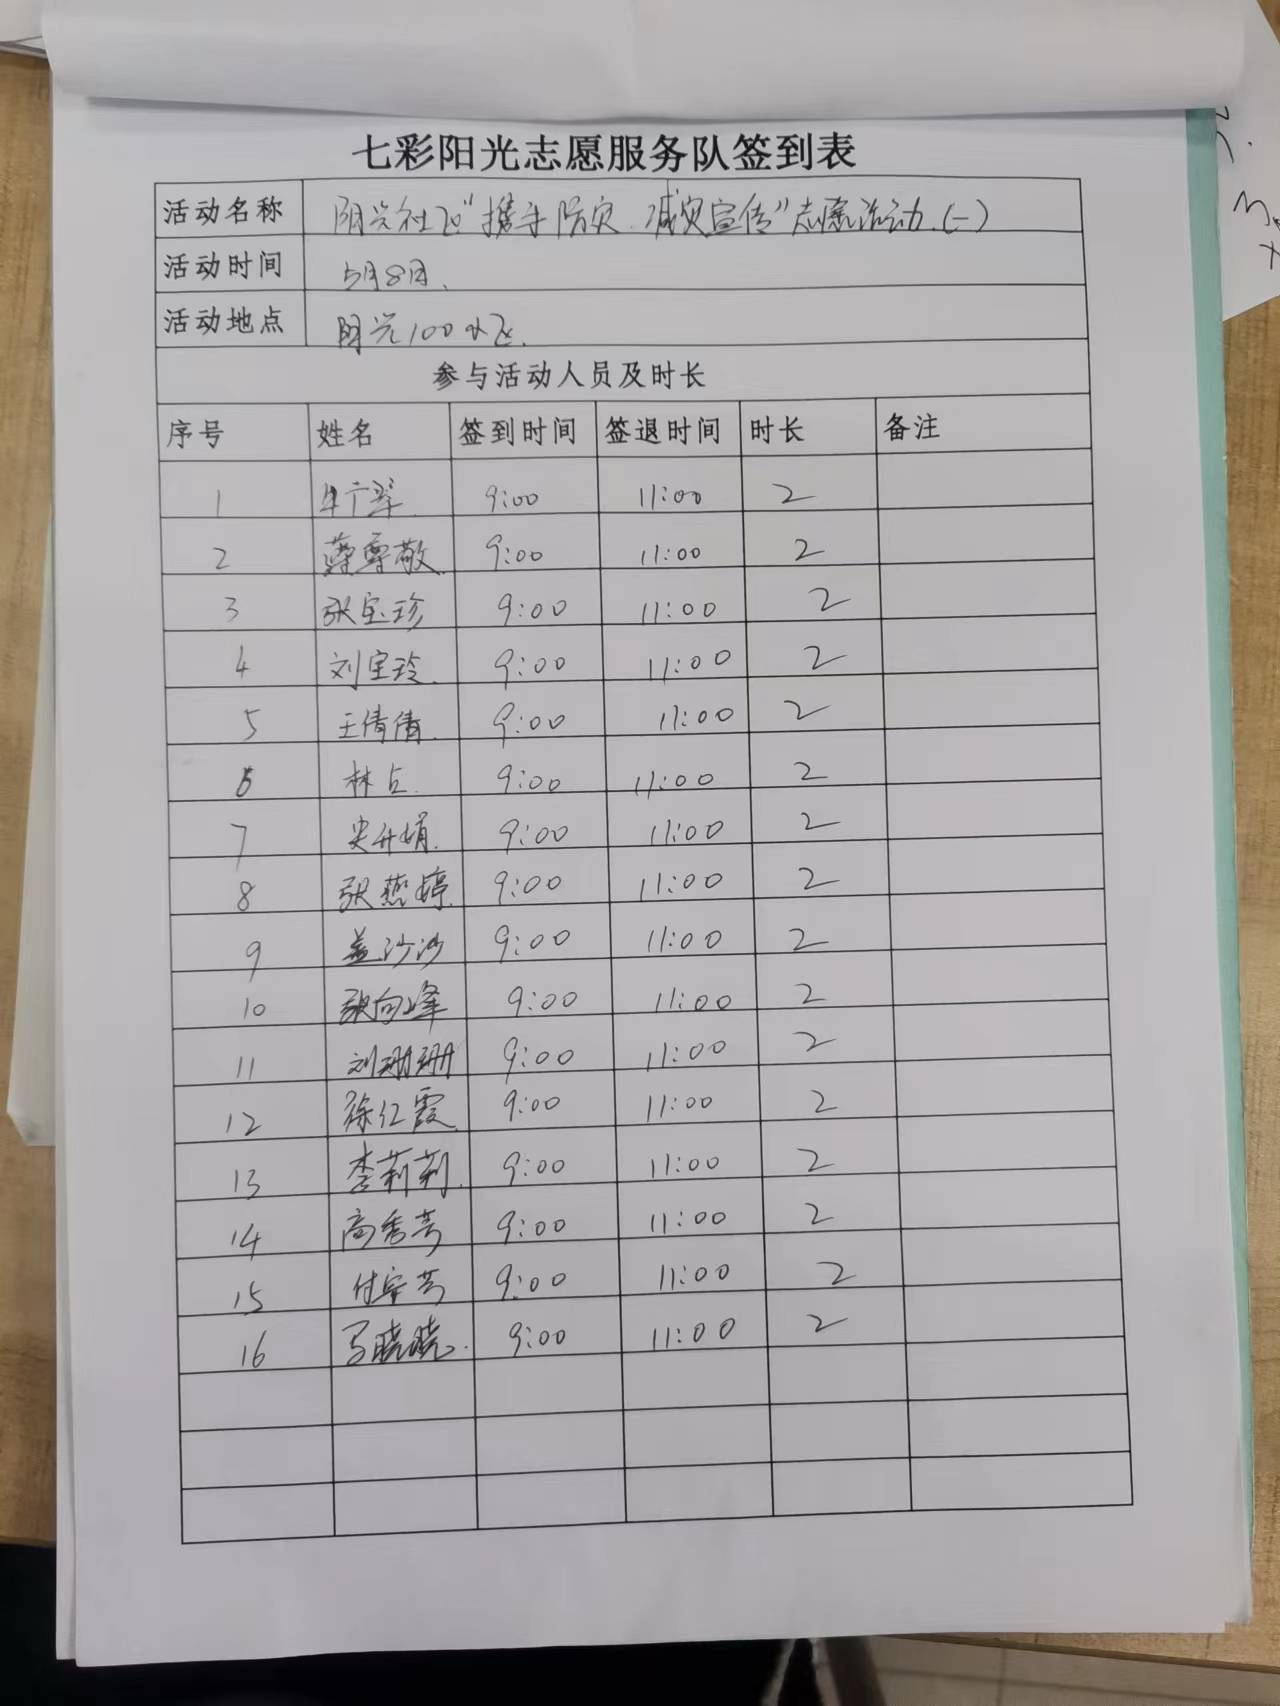 七彩阳光志愿服务队签到表
活动名称 阳光社区“携手防灾.减灾宣传”志愿活动.(一)
活动时间 5月8日.
活动地点 阳光100小区.
参与活动人员及时长
序号 姓名 签到时间 签退时间 时长 备注
1 9:00 11:00 2
2 薛尊敬 9:00 11:00 2
3 张宝珍 9:00 11:00 2
4 刘宝玲. 9:00 11:00 2
5 王倩倩. 9:00 11:00 2
6 林 9:00 11:00 2
7 9:00 11:00 2
8 张燕婷. 9:00 11:00 2
9 盖沙沙 9:00 11:00 2
10 张向峰 9:00 11:00 2
11 刘珊珊 9:00 11:00 2
12 徐仁霞. 9:00 11:00 2
13 李莉莉. 9:00 11:00 2
14 高秀芳 9:00 11:00 2
15 9:00 11:00 2
16 马晓晓. 9:00 11:00 2